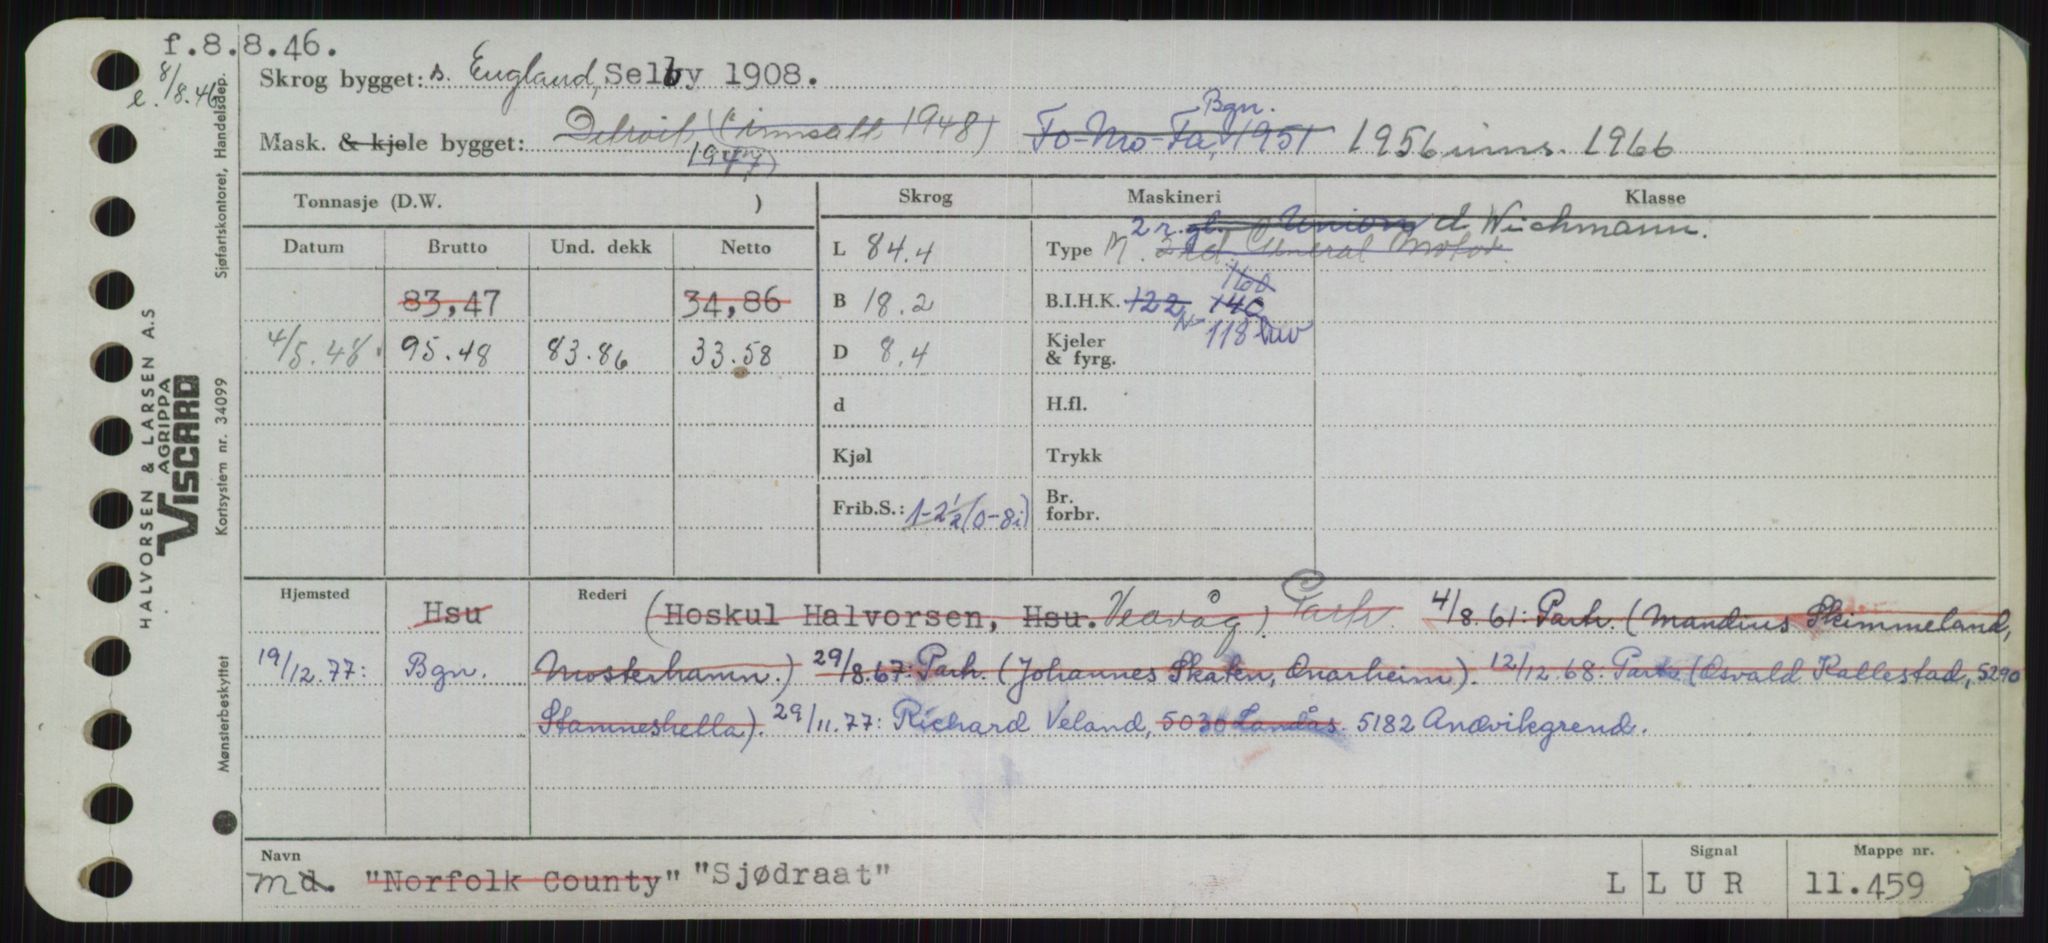 f.8.8.46.
e. 8/8.46
Skrog bygget: s. England, Selby 1908.
Mask. & kjele bygget: Detroit, (innsatt 1948) 1947 Fo-Mo-Fa, Bgn. 1951 1956 inns. 1966
Tonnasje (D.W. )
Skrog
Maskineri
Klasse
Datum Brutto Und. dekk Netto
L 84.4
Type M. 2 r. gl. Union d Wichmann.
General Motor
83,47 34,86
B 18.2
B.I.H.K. 122 140 160
4/5.48. 95.48 83.86 33.58
D 8.4
Kjeler & fyrg.
118 nw
d
H.fl.
Kjøl
Trykk
Frib.S.: 1-2½ (0-8i)
Br. forbr.
Hjemsted
Rederi
Hsu (Hoskul Halvorsen, Hsu. Veavåg) Partr. 4/8.61: Partr. (Mandius Skimmeland,
19/12.77: Bgn. Mosterhamn.) 29/8.67: Partr. (Johannes Skaten, Onarheim). 12/12.68: Partr. (Osvald Kallestad, 5290
Stamneshella). 29/11.77: Richard Veland, 5030 Landås. 5182 Andvikgrend.
Navn
Signal
Mappe nr.
Md. "Norfolk County" "Sjødraat" L L U R 11.459
HALVORSEN & LARSEN A.S
AGRIPPA
VISCARD
Sjøfartskontoret, Handelsdep.
Kortsystem nr. 34099
Mønsterbeskyttet